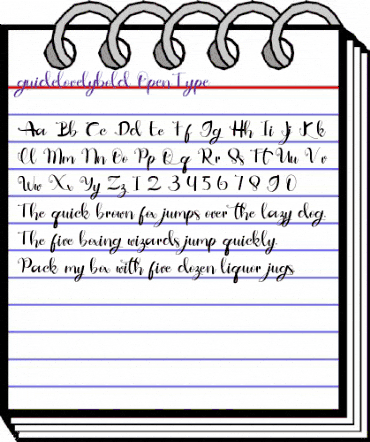 guiddlovelybold OpenType
Aa Bb Cc Dd Ee Ff Gg Hh Ii Jj Kk
Ll Mm Nn Oo Pp Qq Rr Ss Tt Uu Vv
Ww Xx Yy Zz 1 2 3 4 5 6 7 8 9 0
The quick brown fox jumps over the lazy dog.
The five boxing wizards jump quickly.
Pack my box with five dozen liquor jugs.